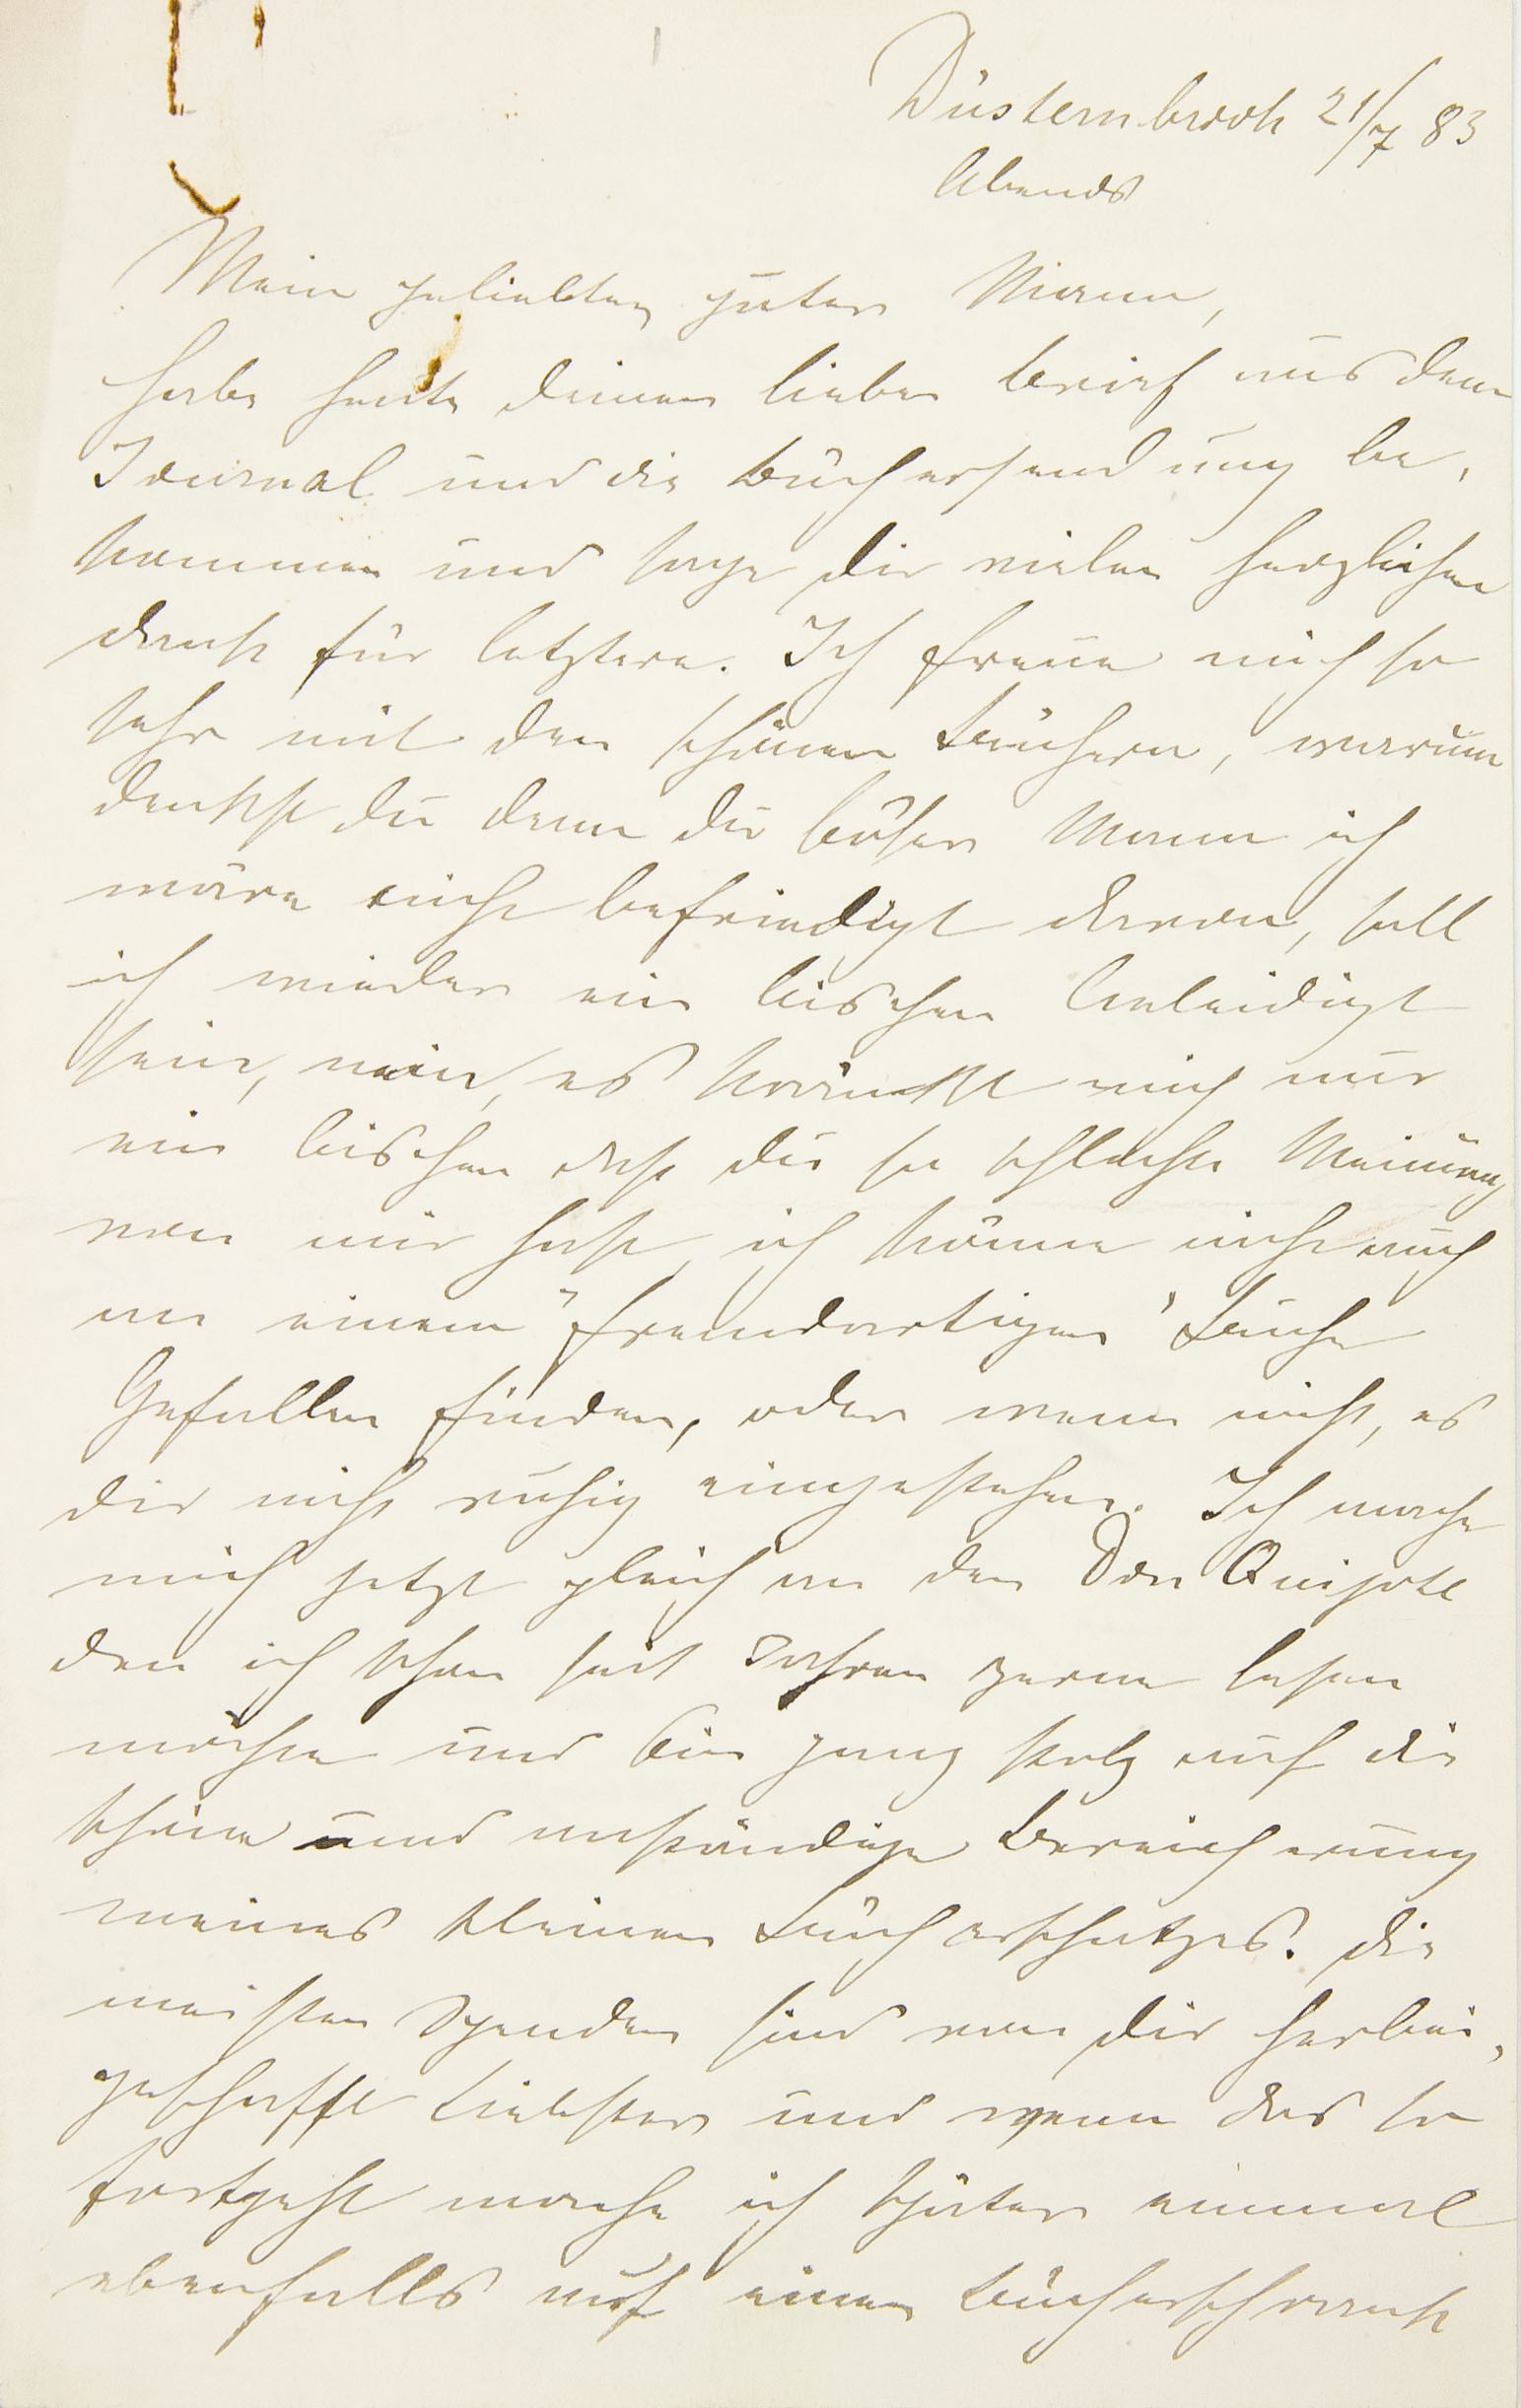 Düsternbrook 21/7 83
Abends
Mein geliebter guter Mann,
Habe heute deinen lieben Brief aus dem
Journal und die Büchersendung be-
kommen und sage dir vielen herzlichen
dank für letztere. Ich freue mich so
sehr mit den schönen Büchern, warum
denkst du denn du böser Mann ich
wäre nicht befriedigt davon, soll
ich wieder ein bischen beleidigt
sein, nein, es kränkt mich nur
ein bischen dass du so schlechte Meinung
von mir hast, ich könne nicht auch
an einem "fremdartigen" Buche
Gefallen finden, oder wenn nicht, es
dir nicht ruhig eingestehen. Ich mache
mich jetzt gleich an den Don Quijote
den ich schon seit Jahren gerne lesen
möchte und bin ganz stolz auf die
schöne und anständige Bereicherung
meines kleinen Bücherschatzes. die
meisten Spenden sind von dir herbei-
geschafft Liebster und wenn das so
fortgeht mache ich später einmal
ebenfalls auf einen Bücherschrank